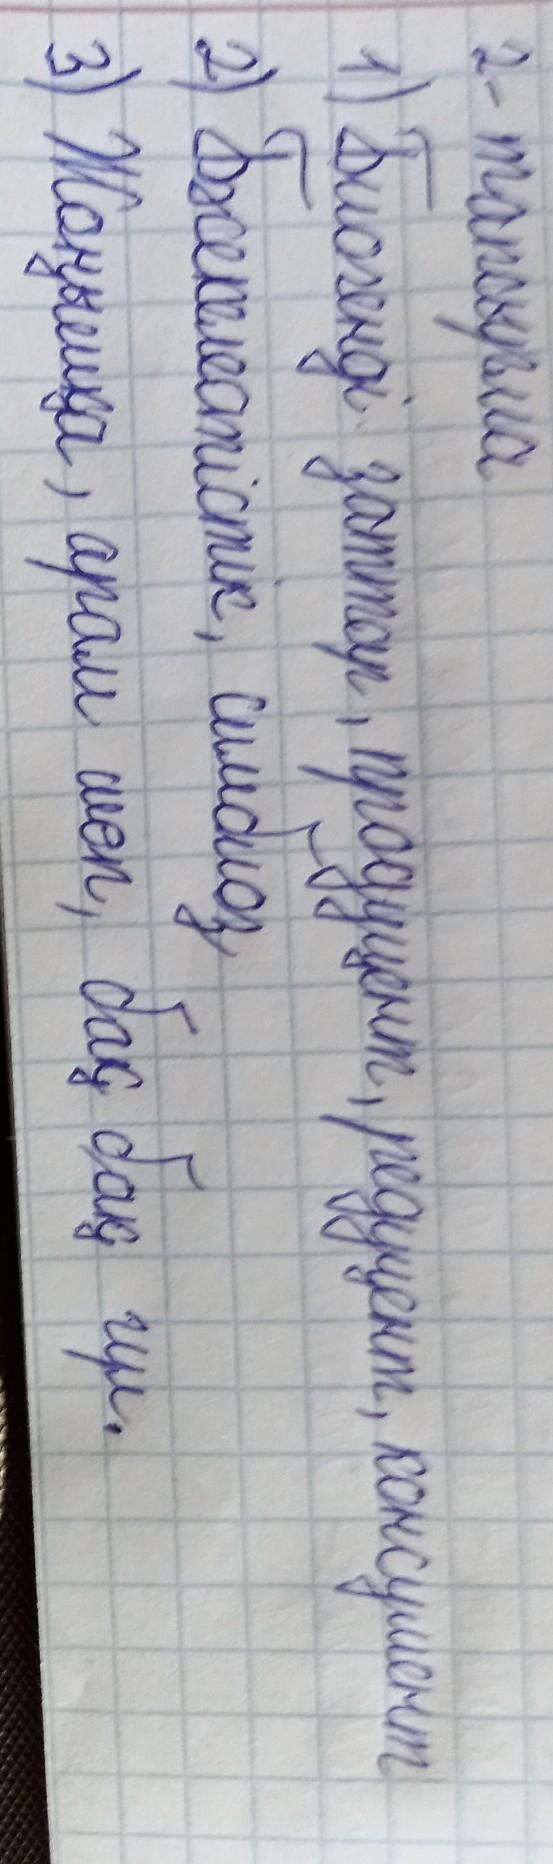 2-тапсырма
1) Биогенді заттар, продуцент, редуцент, консумент
2) Бәсекелестістік, симбиоз,
3) Жоңышқа, арам шөп, бақ бақ гүл.